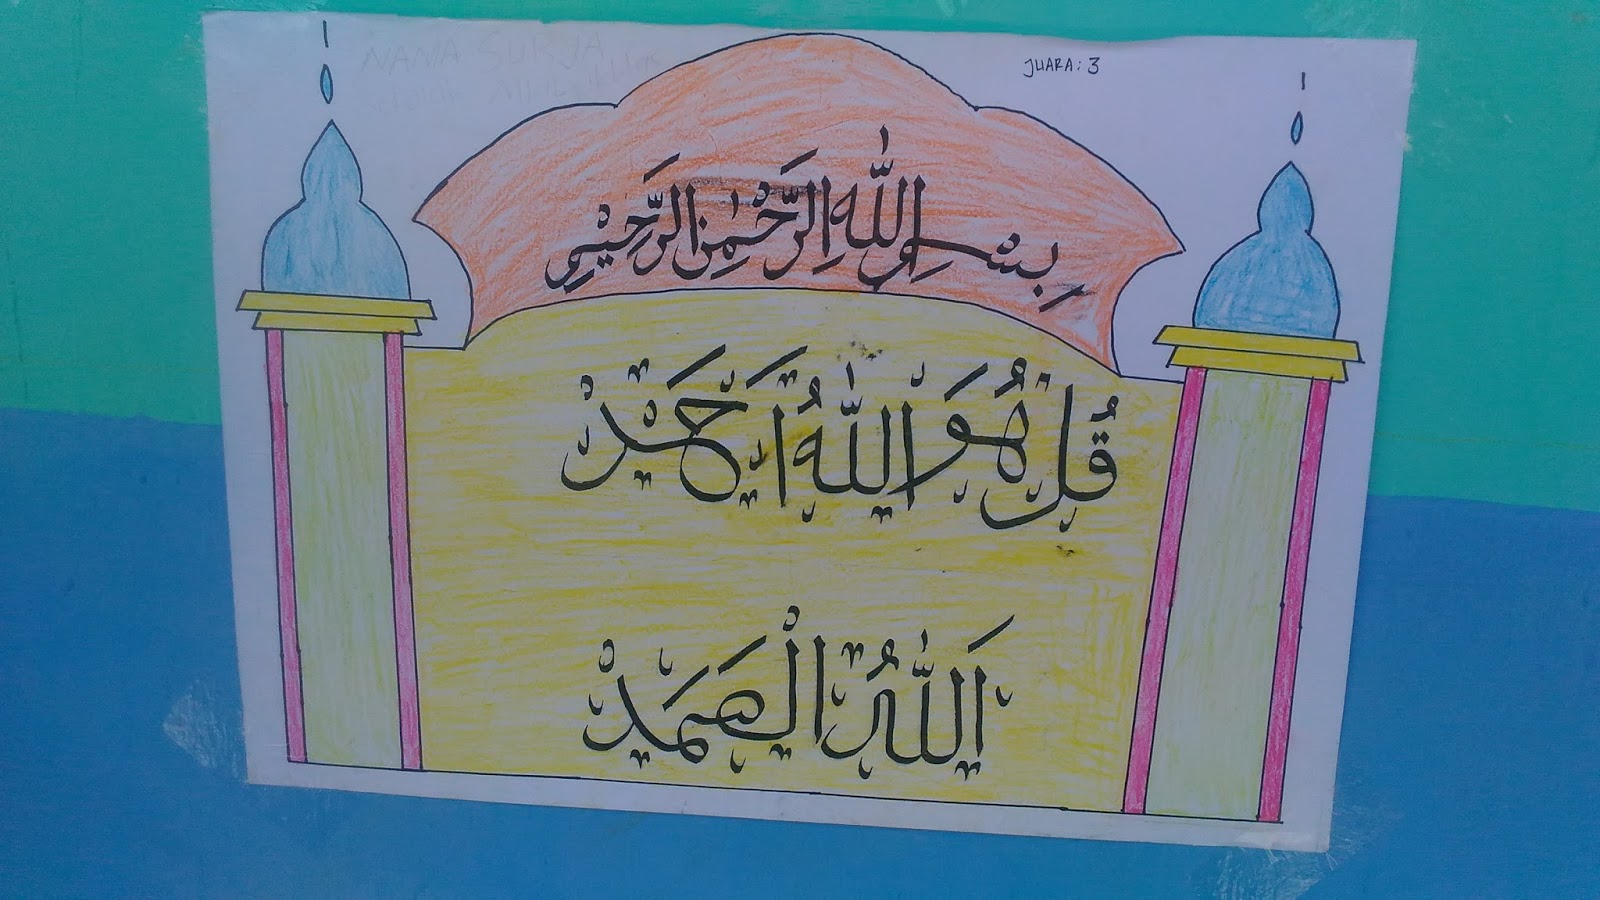 NANA SURYA
JUARA: 3
بِسْمِ اللّٰهِ الرَّحْمٰنِ الرَّحِيْمِ
قُلْ هُوَ اللّٰهُ اَحَدٌ
اَللّٰهُ الْصَمَدْ